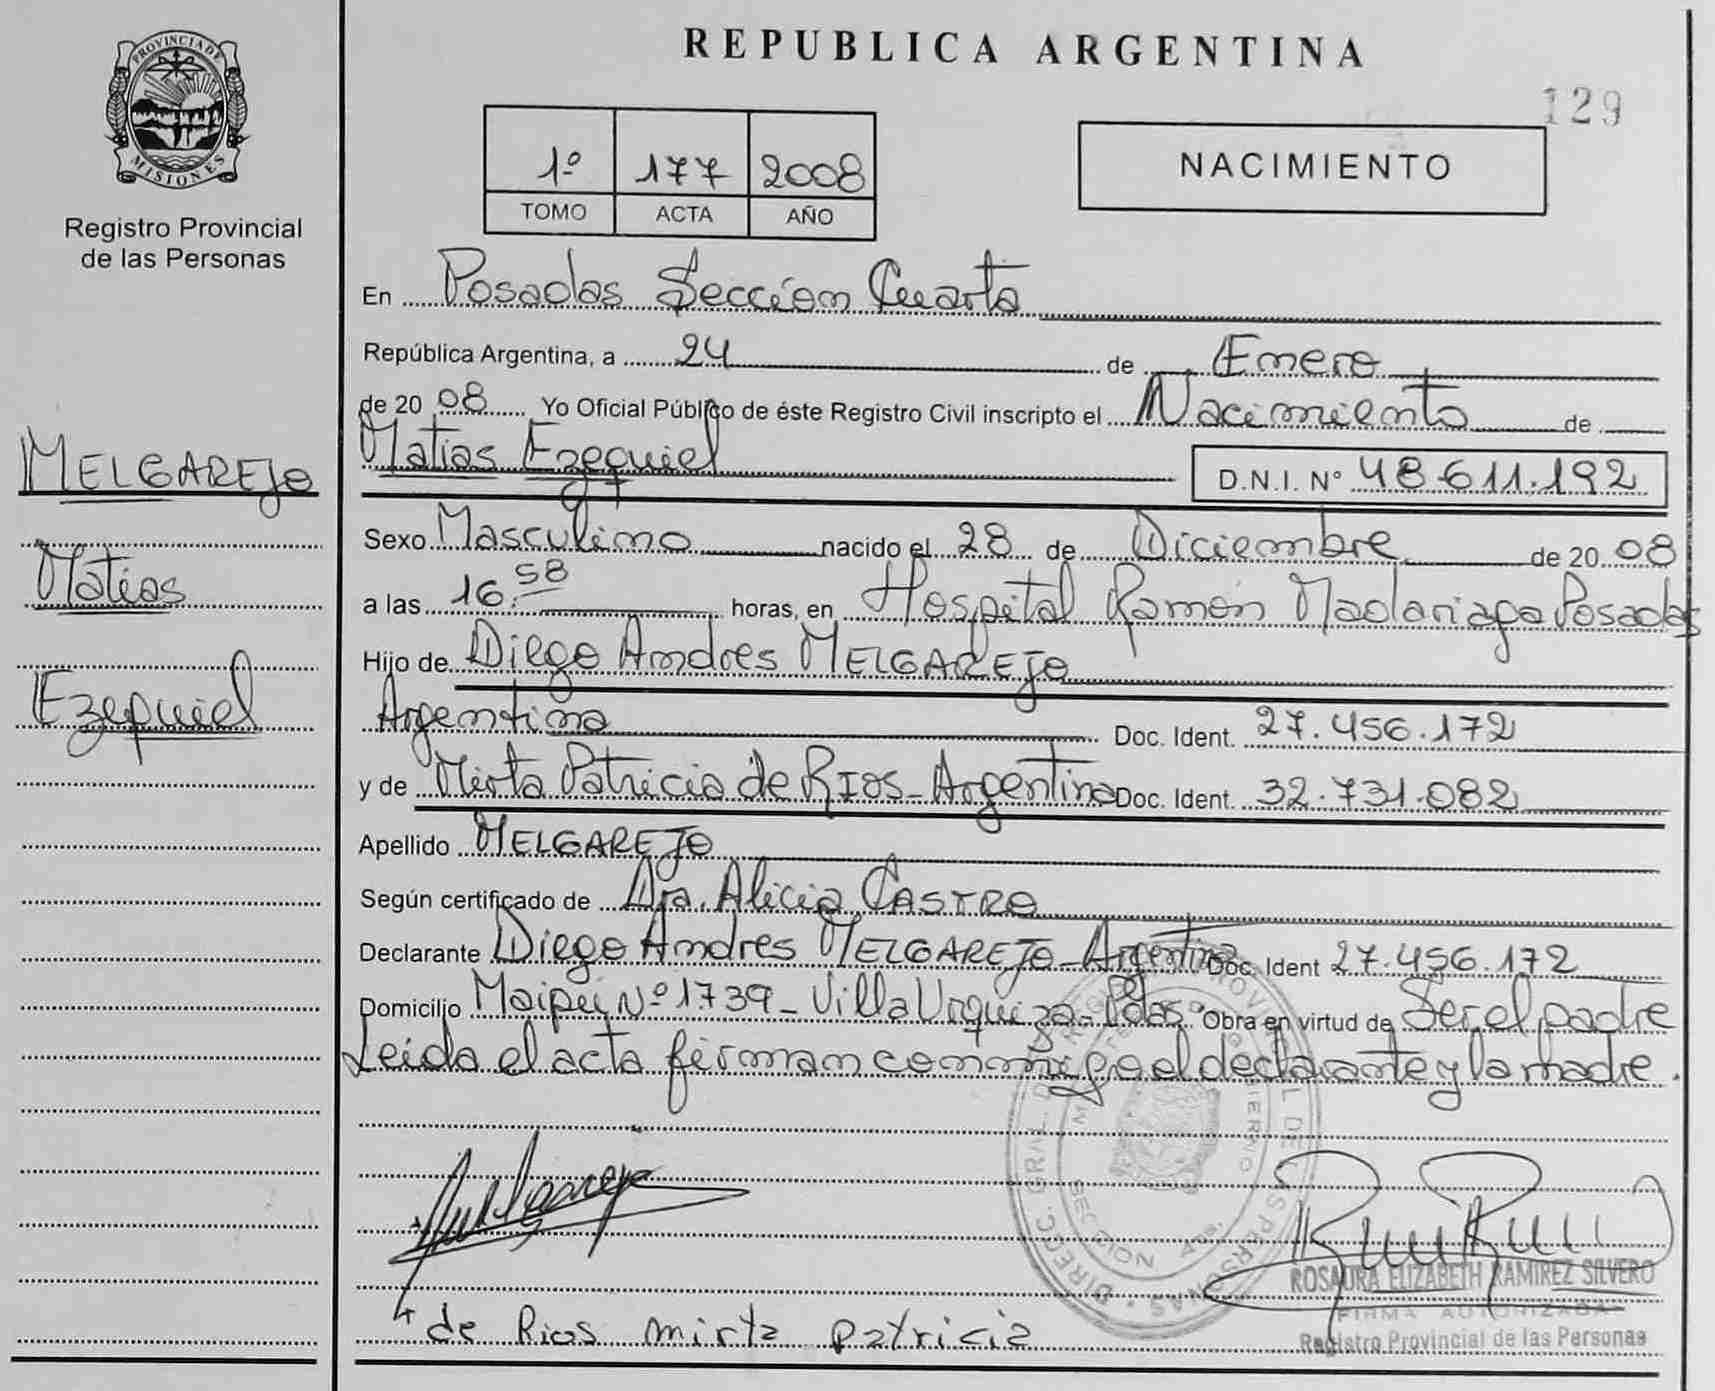 REPUBLICA ARGENTINA
129
PROVINCIA DE
MISIONES
Registro Provincial
de las Personas
1º 177 2008
TOMO ACTA AÑO
NACIMIENTO
En Posadas Sección Cuarta
República Argentina, a 24 de Enero
de 20 08 Yo Oficial Público de éste Registro Civil inscripto el Nacimiento de
Matias Ezequiel D.N.I. Nº 48.611.192
Sexo Masculino nacido el 28 de Diciembre de 20 08
a las 16:58 horas, en Hospital Ramón Madariaga Posadas
Hijo de Diego Andres MELGAREJO
Argentina Doc. Ident. 27.456.172
y de Mirta Patricia de RIOS - Argentina Doc. Ident. 32.731.082
Apellido MELGAREJO
Según certificado de Dra. Alicia CASTRO
Declarante Diego Andres MELGAREJO - Argentina Doc. Ident 27.456.172
Domicilio Maipú Nº 1739 - Villa Urquiza - Pdas. Obra en virtud de Ser el padre
Leida el acta firman conmigo el declarante y la madre.
MELGAREJO
Matias
Ezequiel
de Rios mirta patricia
ROSAURA ELIZABETH RAMIREZ SILVERO
FIRMA AUTORIZADA
Registro Provincial de las Personas